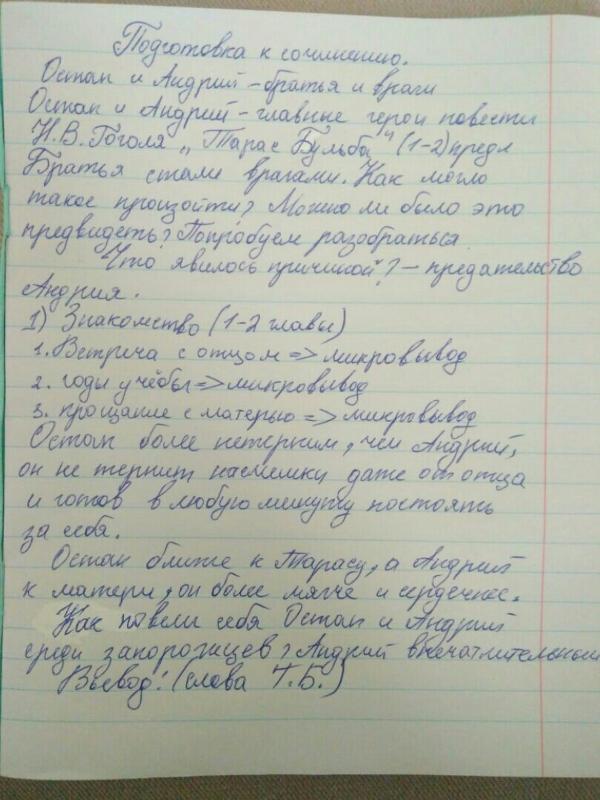 Подготовка к сочинению.
Остап и Андрий - братья и враги
Остап и Андрий - главные герои повести
Н.В. Гоголя „Тарас Бульба" (1-2) предл
Братья стали врагами. Как могло
такое произойти? Можно ли было это
предвидеть? Попробуем разобраться.
Что явилось причиной? - предательство
Андрия.
1) Знакомство (1-2 главы)
1. Встреча с отцом => микровывод
2. годы учёбы => микровывод
3. прощание с матерью => микровывод
Остап более нетерпим, чем Андрий,
он не терпит насмешки даже от отца
и готов в любую минуту постоять
за себя.
Остап ближе к Тарасу, а Андрий
к матери, он более мягче и сердечнее.
Как повели себя Остап и Андрий
среди запорожцев? Андрий впечатлительный
Вывод: (слова Т.Б.)